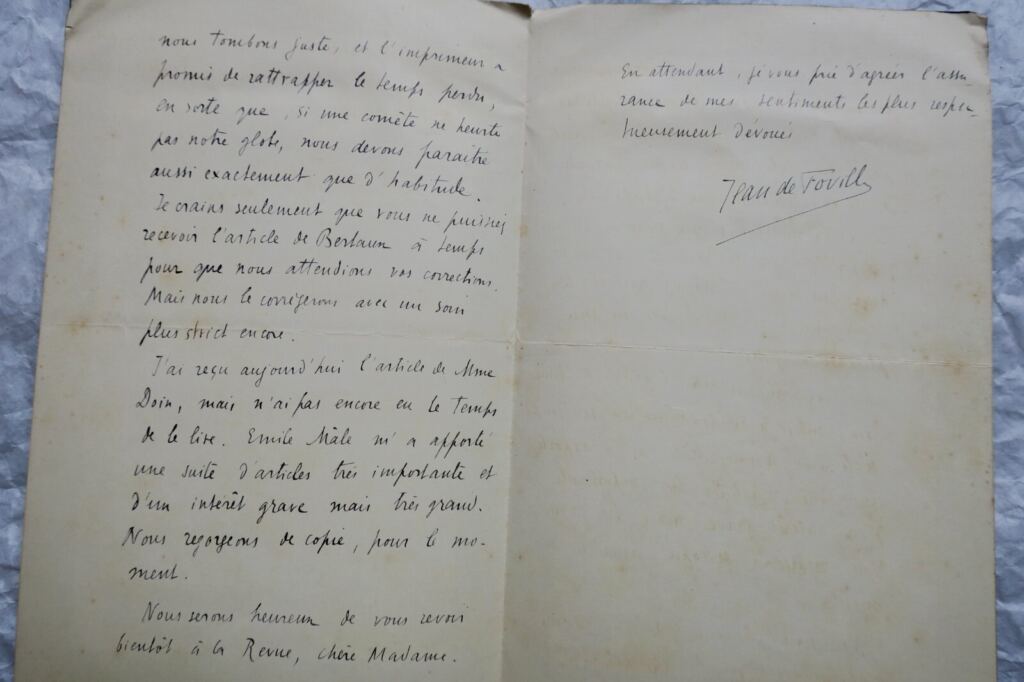 nous tombons juste, et l'imprimeur a
promis de rattrapper le temps perdu,
en sorte que, si une comète ne heurte
pas notre globe, nous devons paraître
aussi exactement que d'habitude.
Je crains seulement que vous ne puissiez
recevoir l'article de Bertaux à temps
pour que nous attendions vos corrections.
Mais nous le corrigerons avec un soin
plus strict encore.
J'ai reçu aujourd'hui l'article de Mme
Doin, mais n'ai pas encore eu le temps
de le lire. Emile Mâle m'a apporté
une suite d'articles très importante et
d'un intérêt grave mais très grand.
Nous regorgeons de copie, pour le mo-
ment.
Nous serons heureux de vous revoir
bientôt à la Revue, chère Madame.
En attendant, je vous prie d'agréer l'assu-
rance de mes sentiments les plus respec-
tueusement dévoués
Jean de Foville